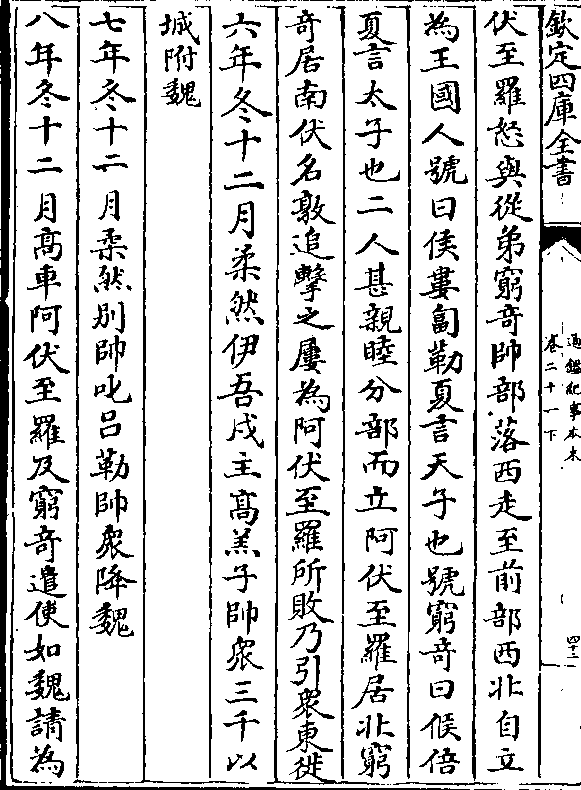 欽定四庫全書
通鑑紀事本末
卷二十一下
四十二
伏至羅怒與從弟窮奇帥部落西走至前部西北自立
為王國人號曰侯婁匐勒夏言天子也號窮奇曰候倍
夏言太子也二人甚親睦分部而立阿伏至羅居北窮
奇居南伏名敦追擊之屢為阿伏至羅所敗乃引衆東徙
六年冬十二月柔然伊吾戍主高羔子帥衆三千以
城附魏
七年冬十二月柔然别帥叱吕勒帥衆降魏
八年冬十二月高車阿伏至羅及窮奇遣使如魏請為